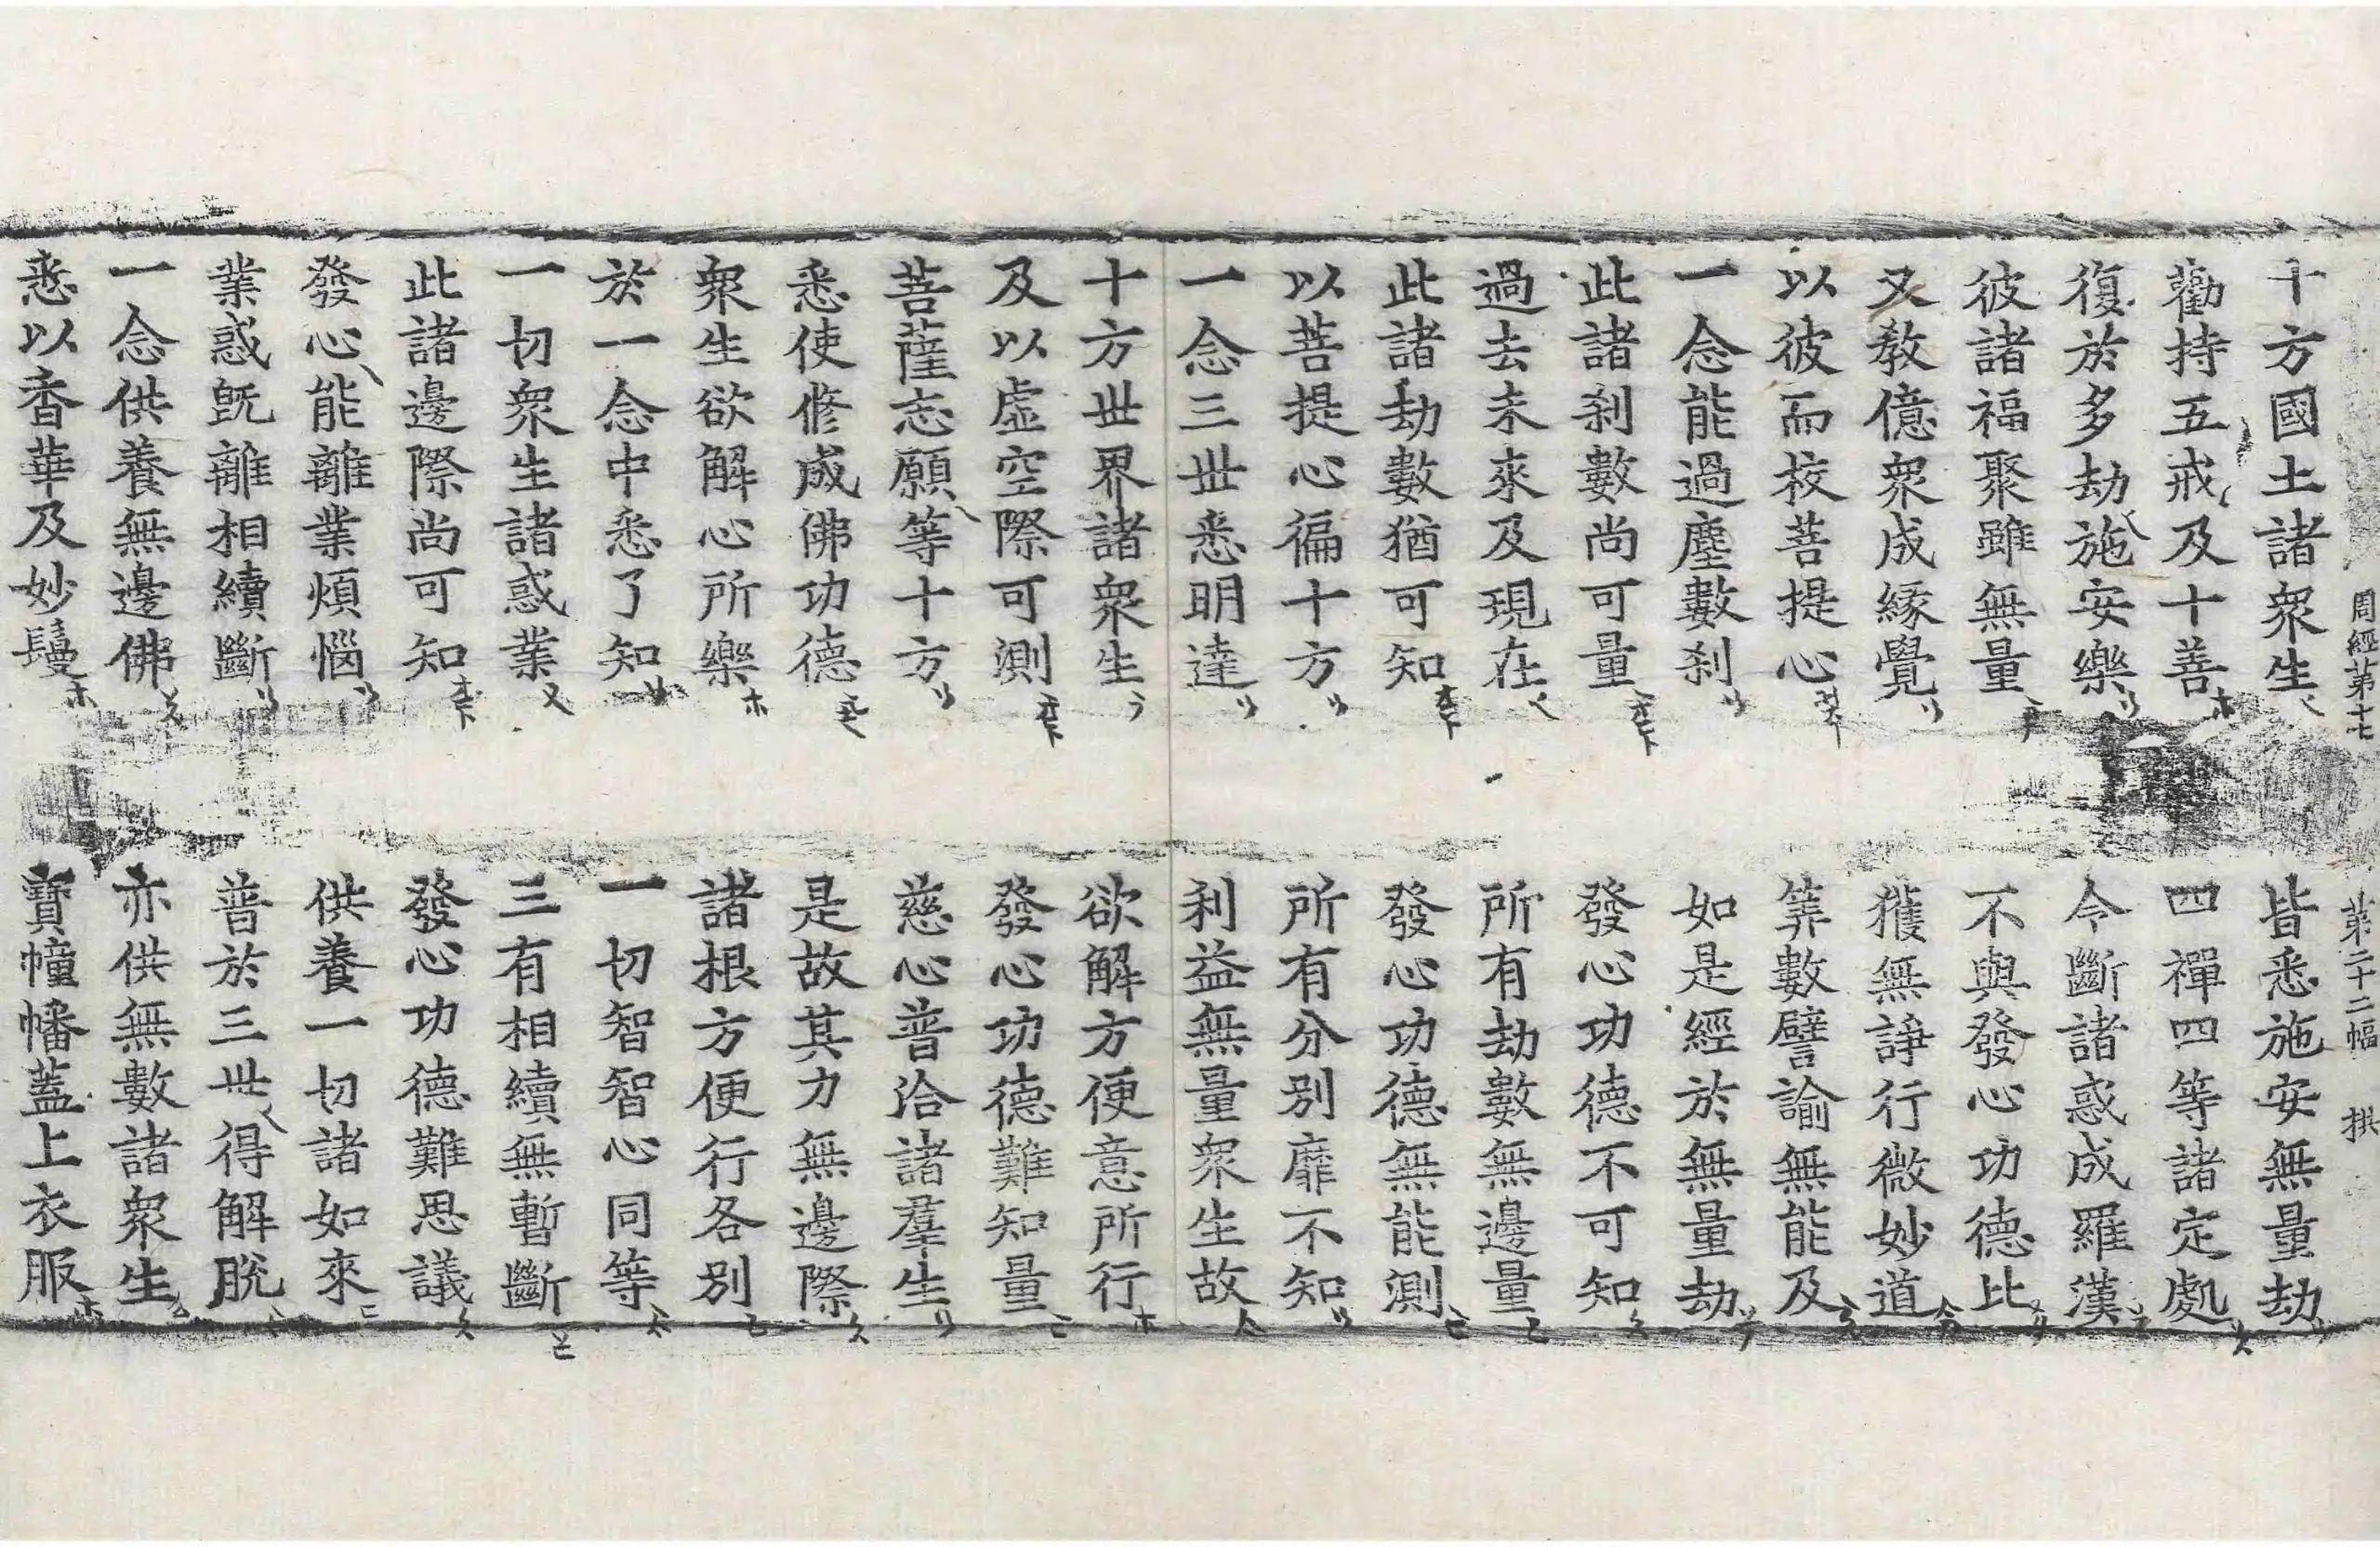 周經第十七 第二十二幅 拱
十方國土諸衆生 皆悉施安無量劫
勸持五戒及十善 四禪四等諸定處
復於多劫施安樂 令斷諸惑成羅漢
彼諸福聚雖無量 不與發心功德比
又教億衆成緣覺 獲無諍行微妙道
以彼而校菩提心 筭數譬諭無能及
一念能過塵數刹 如是經於無量劫
此諸刹數尚可量 發心功德不可知
過去未來及現在 所有劫數無邊量
此諸劫數猶可知 發心功德無能測
以菩提心徧十方 所有分別靡不知
一念三世悉明達 利益無量衆生故
十方世界諸衆生 欲解方便意所行
及以虛空際可測 發心功德難知量
菩薩志願等十方 慈心普洽諸羣生
悉使修成佛功德 是故其力無邊際
衆生欲解心所樂 諸根方便行各別
於一念中悉了知 一切智智心同等
一切衆生諸惑業 三有相續無暫斷
此諸邊際尚可知 發心功德難思議
發心能離業煩惱 供養一切諸如來
業惑旣離相續斷 普於三世得解脫
一念供養無邊佛 亦供無數諸衆生
悉以香華及妙鬘 寶幢幡蓋上衣服